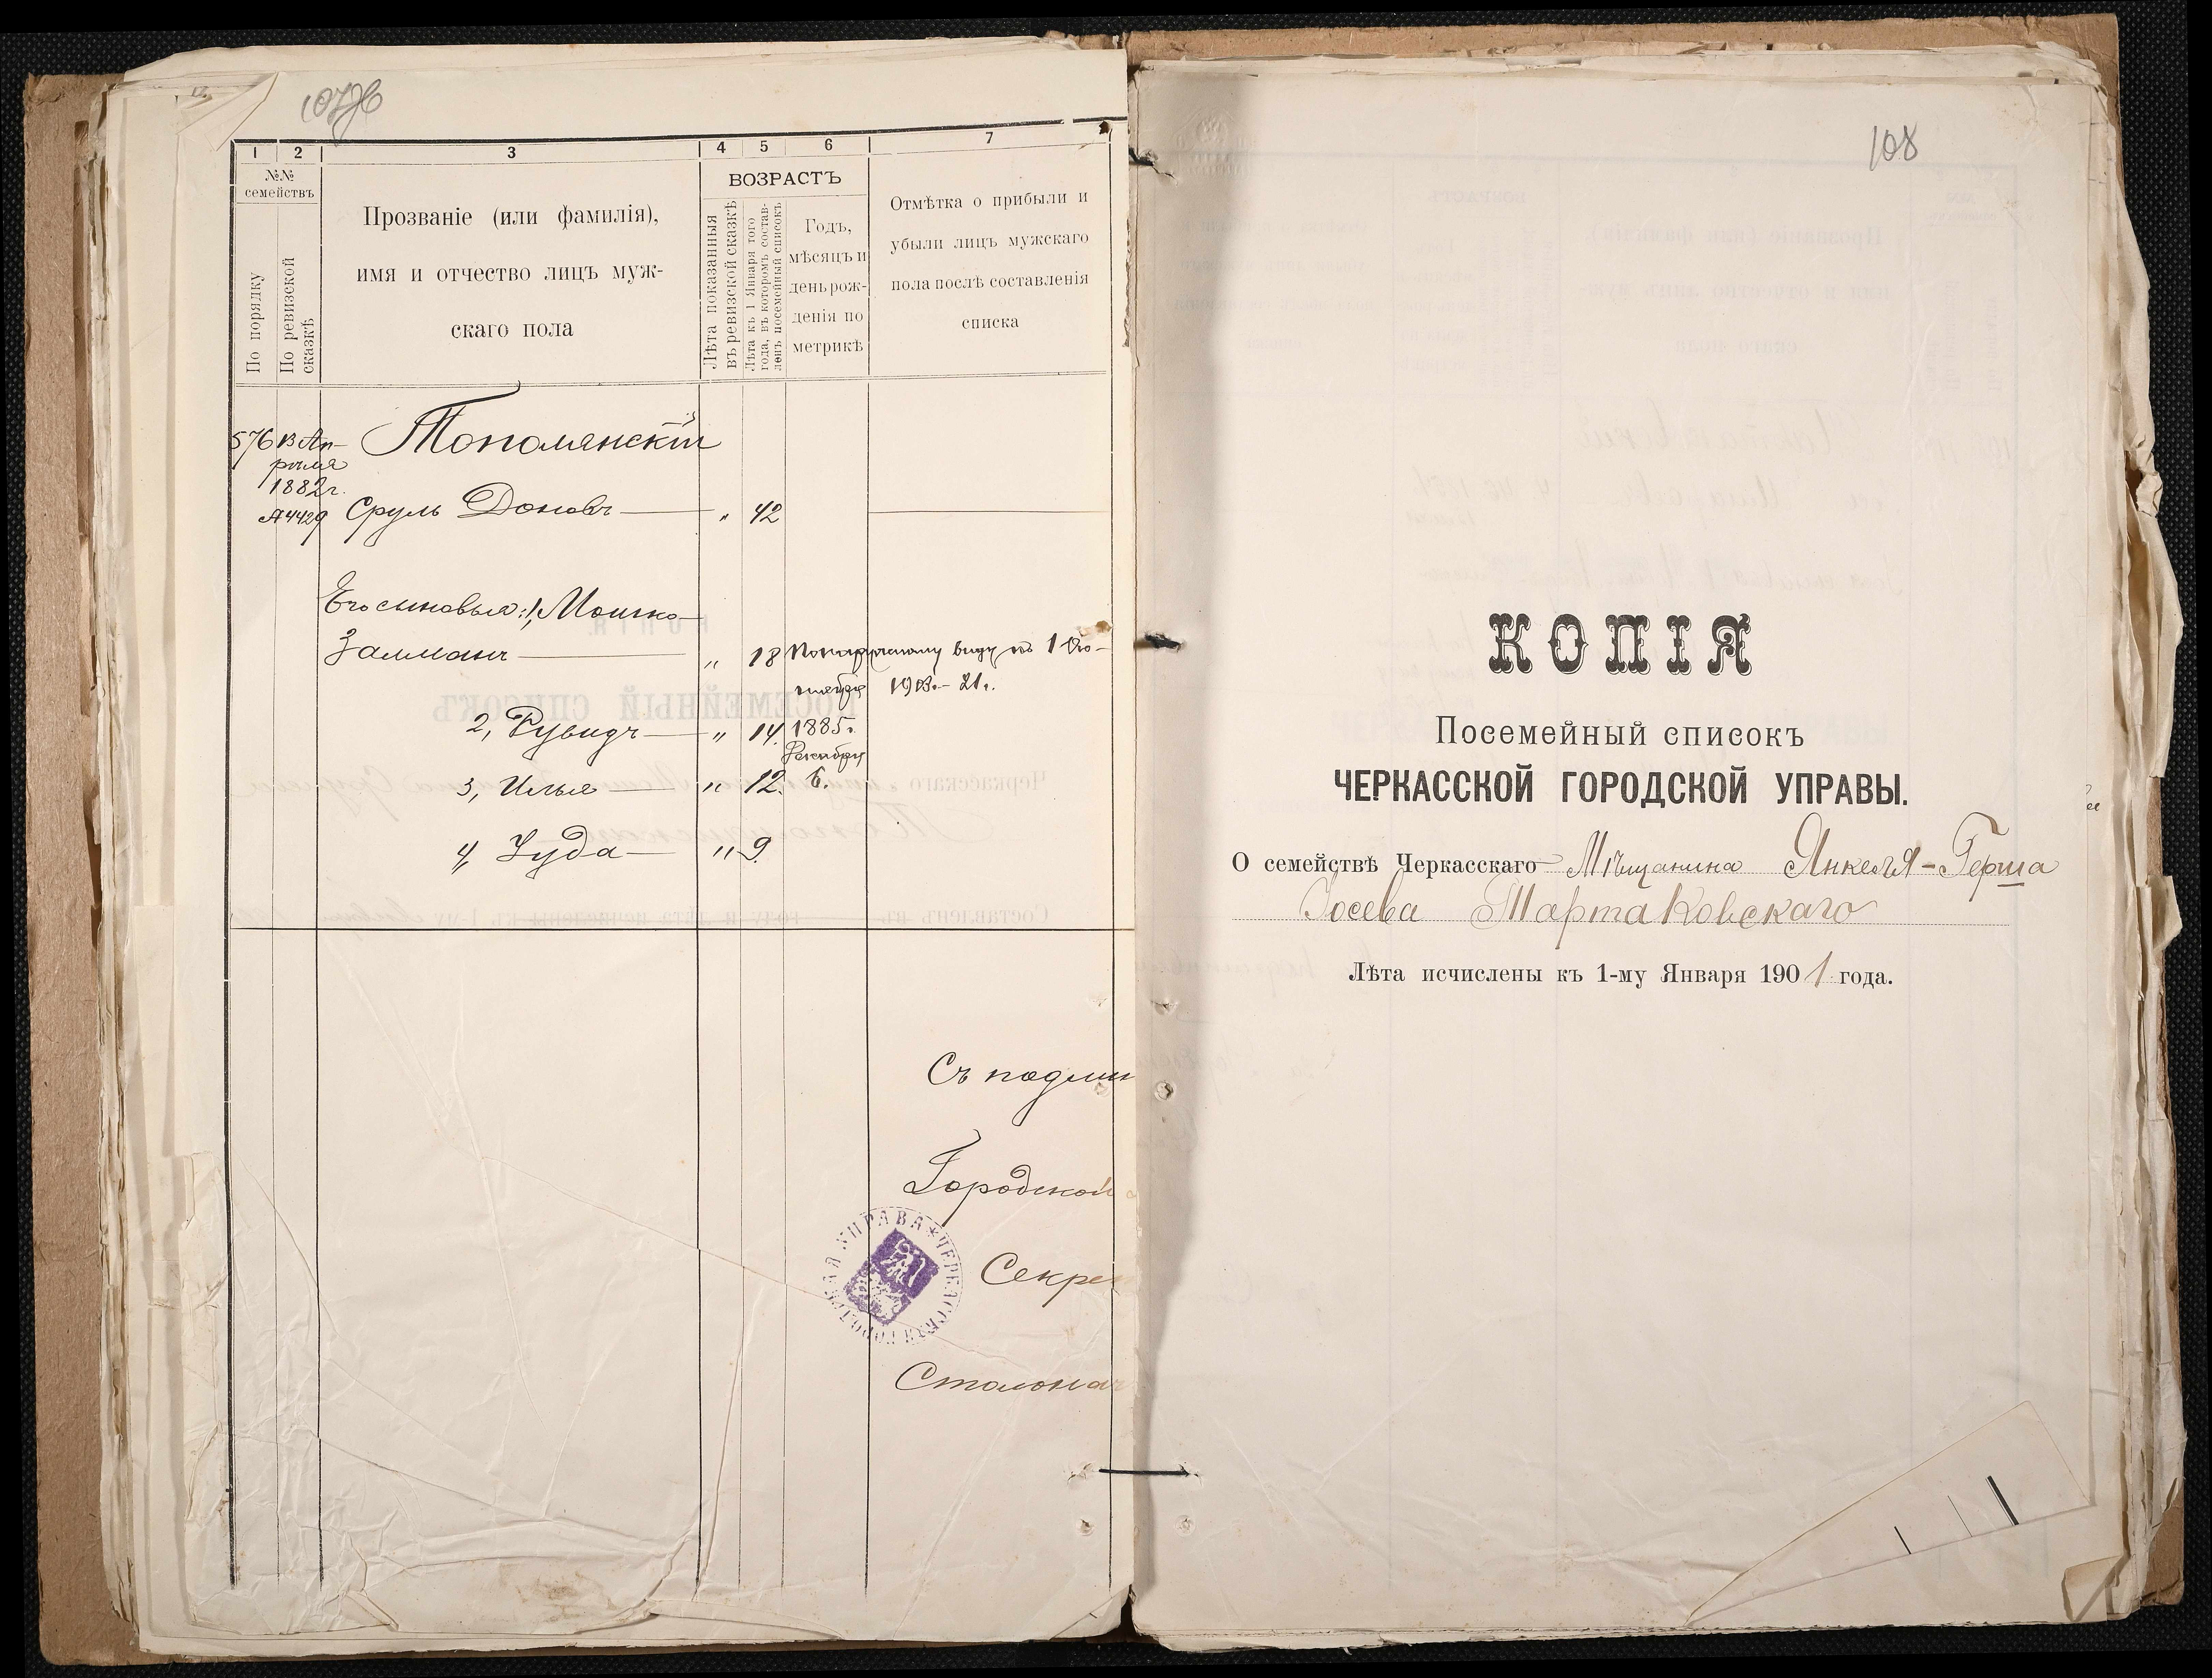 107об
1 2 3 4 5 6 7
№№
семействъ
По порядку
По ревизской
сказкѣ
Прозваніе (или фамилія),
имя и отчество лицъ муж-
скаго пола
ВОЗРАСТЪ
Лѣта показанныя
въ ревизской сказкѣ
Лѣта къ 1 Января того
года, въ которомъ состав-
ленъ посемейный списокъ
Годъ,
мѣсяцъ и
день рож-
денія по
метрикѣ
Отмѣтка о прибыли и
убыли лицъ мужскаго
пола послѣ составленія
списка
576 13 Ап-
рѣля
1882 г.
№ 4429
Тополянскій
Сруль Доновъ — " 42
Его сыновья: 1, Мошко-
Залманъ — " 18 По наружному виду къ 1 Ок-
тября 1903 г. - 21 г.
2, Рувидъ — " 14. 1885 г.
Декабря
3, Илья — " 12. 6.
4, Іуда — " 9.
Съ подлин
Городской
Секре
Столонач
ЧЕРКАССКАЯ ГОРОДСКАЯ УПРАВА
108
КОПІЯ
Посемейный списокъ
ЧЕРКАССКОЙ ГОРОДСКОЙ УПРАВЫ.
О семействѣ Черкасскаго Мѣщанина Янкеля-Герша
Іосева Тартаковскаго
Лѣта исчислены къ 1-му Января 1901 года.